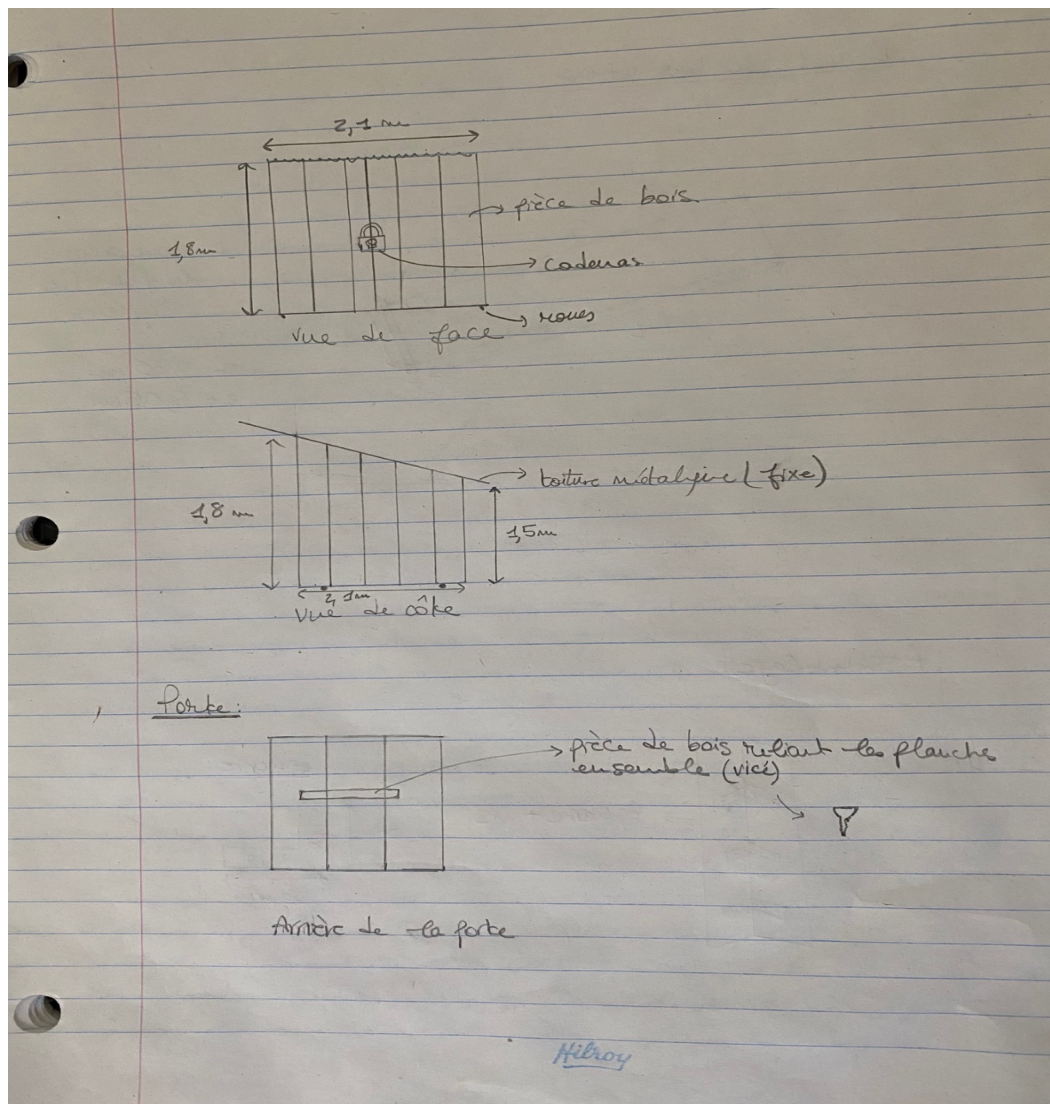 2,1 m
1,8m
pièce de bois.
cadenas
roues
vue de face
toiture métalique (fixe)
1,8 m
1,5m
2,1m
vue de côte
Porte:
pièce de bois reliant les planche
ensemble (vicé)
Arrière de la porte
Hilroy